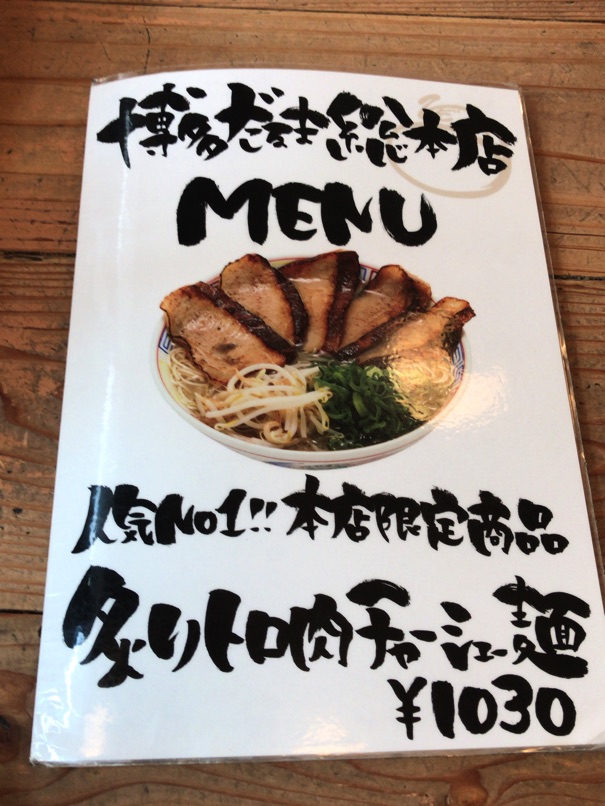 博多だるま総本店
MENU
人気No1!! 本店限定商品
炙りトロ肉チャーシュー麺
¥1030